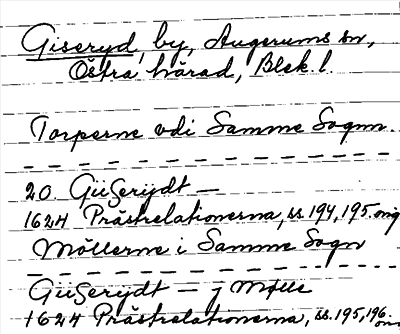 Giseryd, by, Augerums sn,
Östra härad, Blek. l.
Torperne vdi Samme Sognn.
20. Giißerijdt —
1624 Prästrelationerna, ss. 194, 195. orig
Möllerne i Samme Sogn
Giißerijdt — j Mølle
1624 Prästrelationerna, ss. 195, 196.